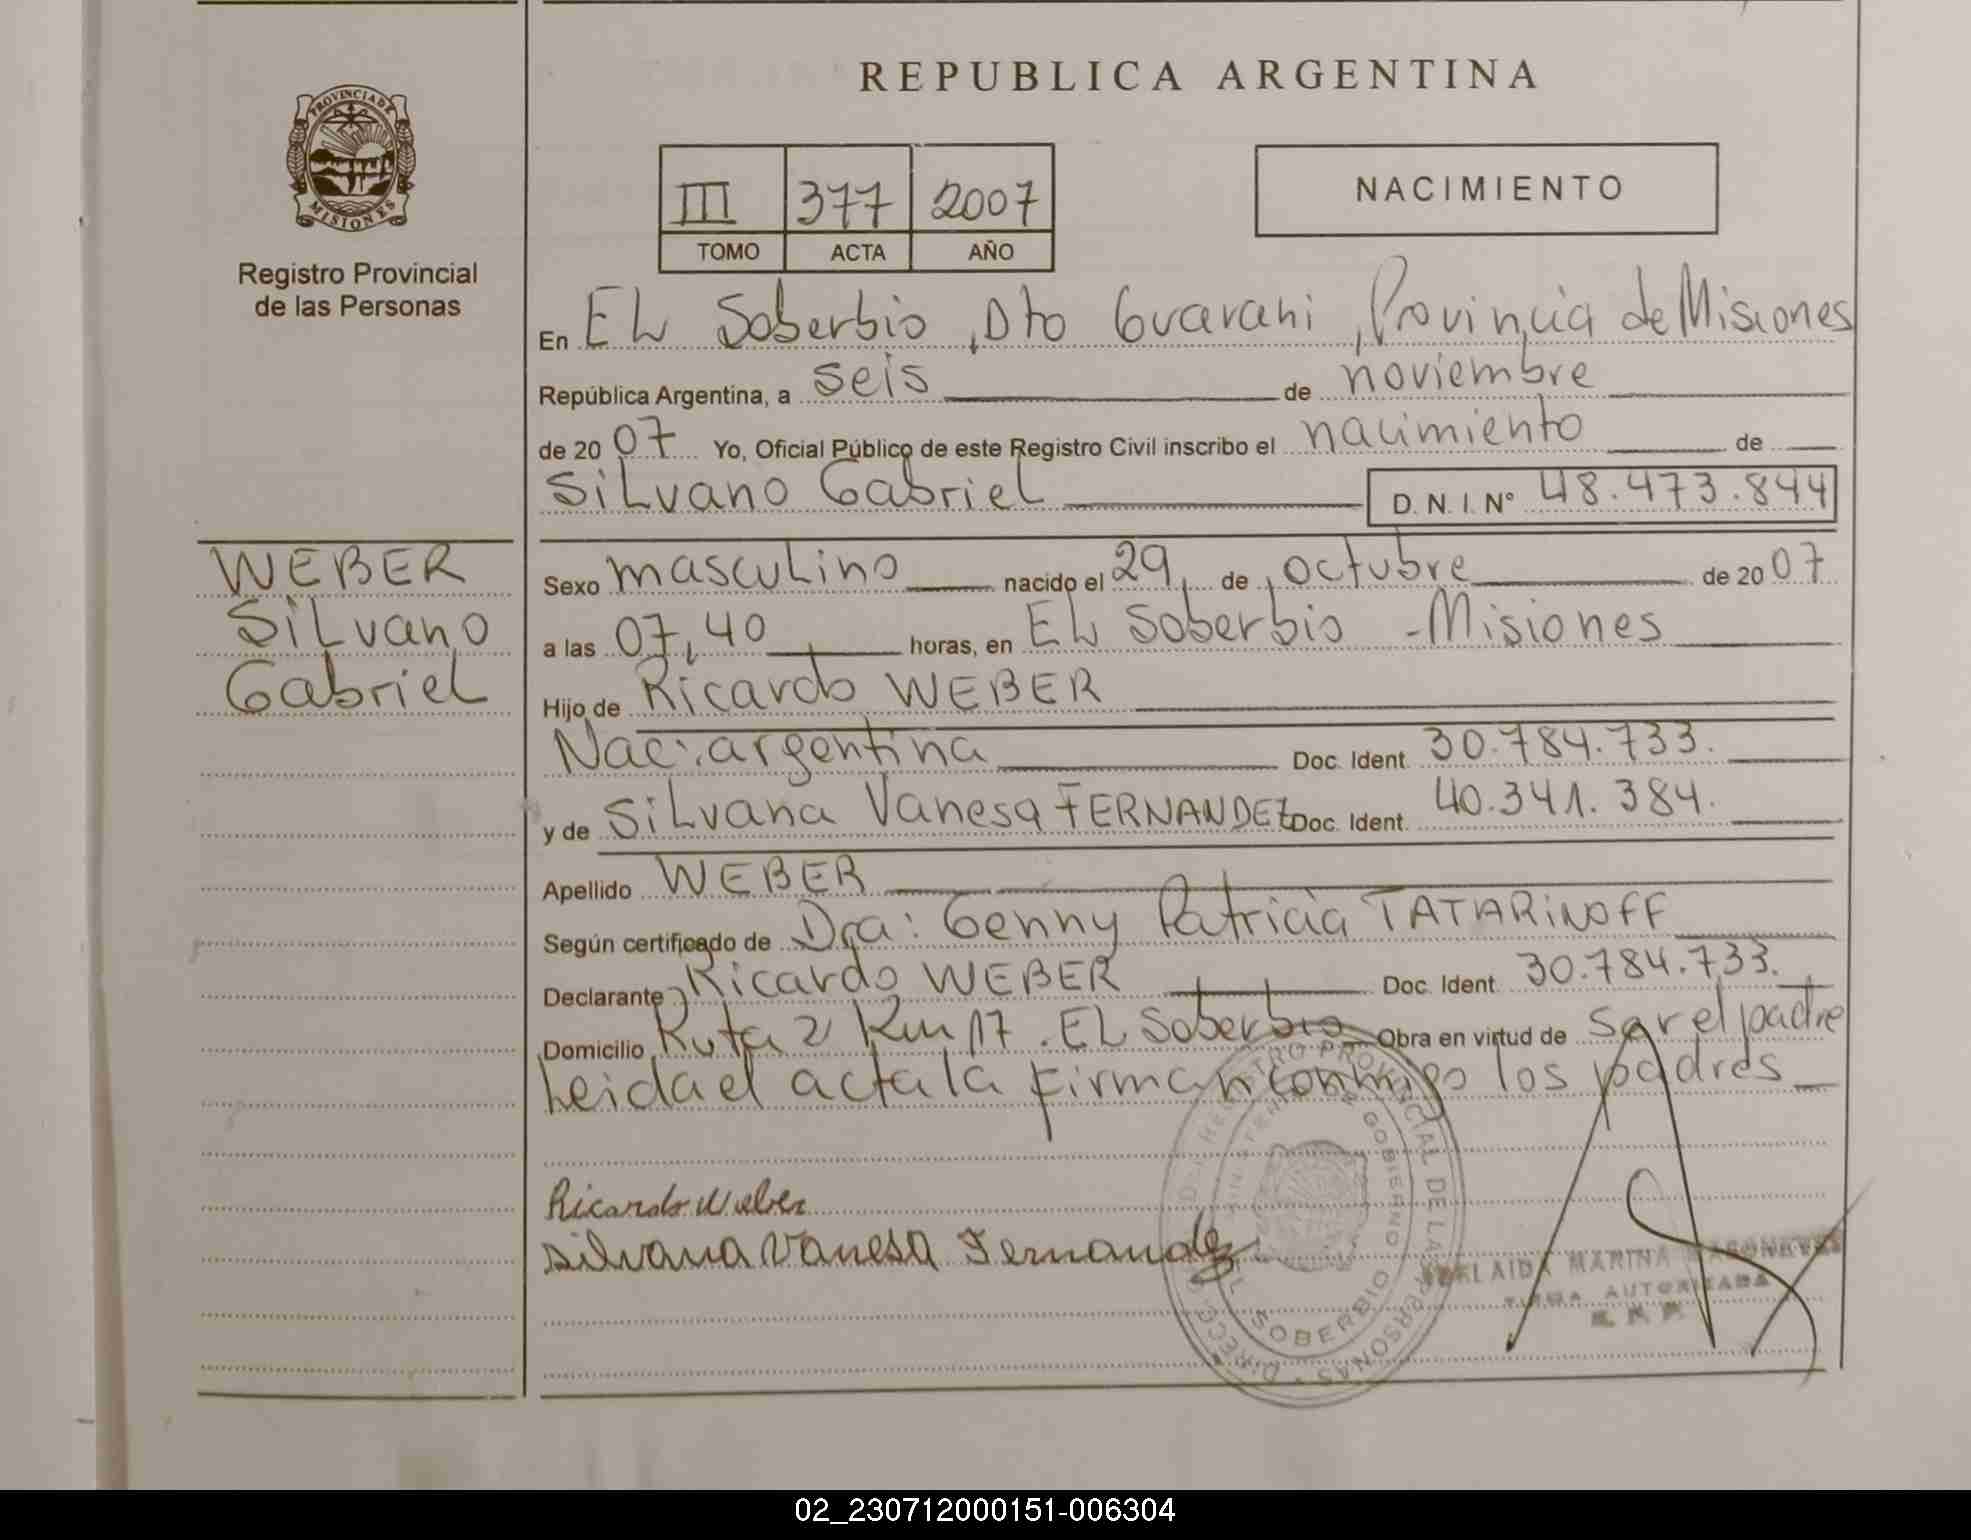 REPUBLICA ARGENTINA
PROVINCIA DE
MISIONES
Registro Provincial
de las Personas
III 377 2007
TOMO ACTA AÑO
NACIMIENTO
En EL Soberbio, Dto Guarani, Provincia de Misiones
República Argentina, a seis de noviembre
de 2007 Yo, Oficial Público de este Registro Civil inscribo el nacimiento de
SiLvano Gabriel D. N. I. N° 48.473.844
WEBER
SiLvano
GabrieL
Sexo mascuLino nacido el 29 de octubre de 2007
a las 07,40 horas, en EL Soberbio - Misiones
Hijo de Ricardo WEBER
Nac: argentina Doc. Ident. 30.784.733.
y de SiLvana Vanesa FERNANDEZ Doc. Ident. 40.341.384.
Apellido WEBER
Según certificado de Dra: Genny Patricia TATARiNOFF
Declarante Ricardo WEBER Doc. Ident. 30.784.733.
Domicilio Ruta 2 Km 17. EL Soberbio Obra en virtud de ser el padre
Leida el acta la firman conmigo los padres
Ricardo Weber
Silvana Vanesa Fernandez
REGISTRO PROVINCIAL DE LAS PERSONAS
GOBIERNO
EL SOBERBIO
MARINA
FIRMA AUTORIZADA
02_230712000151-006304